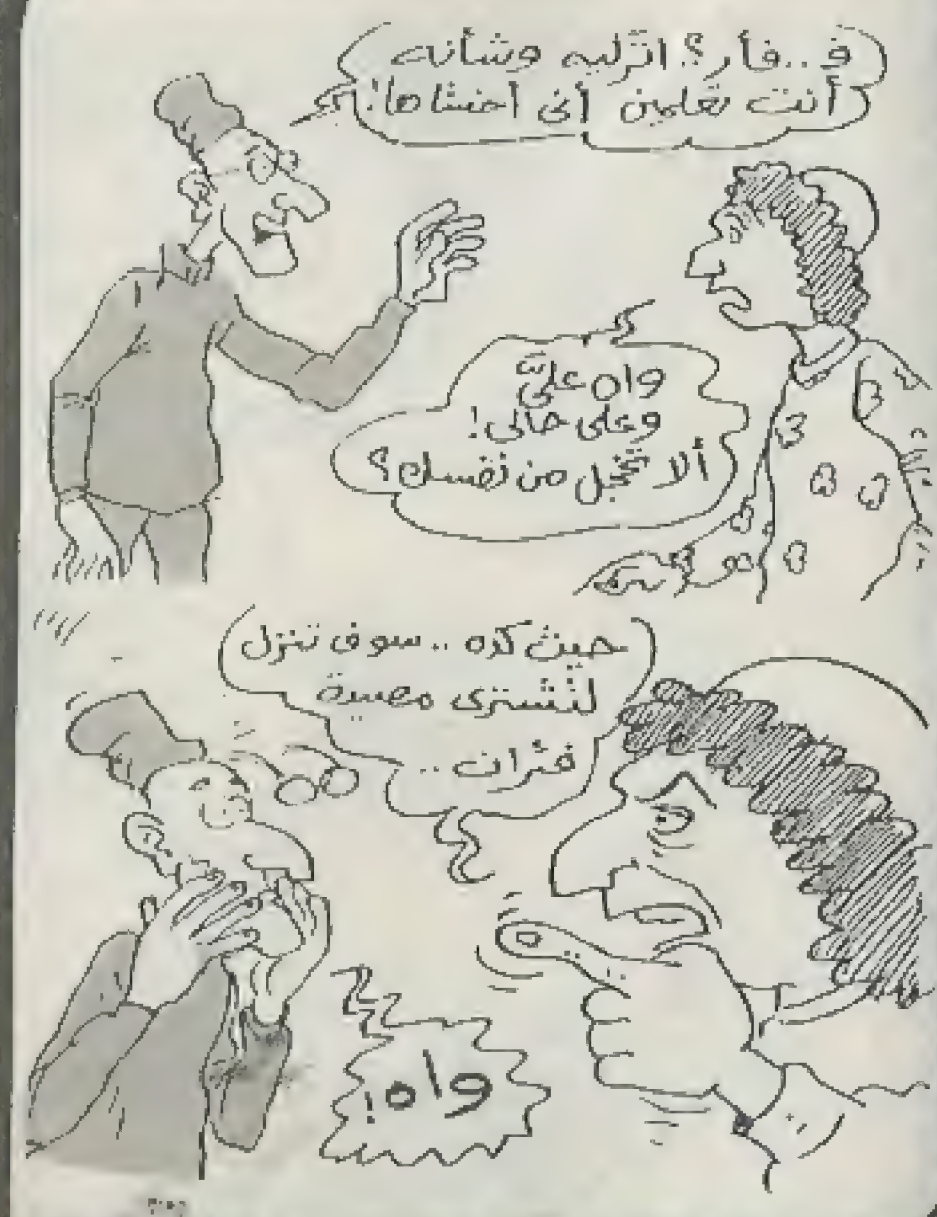 ف..فأر؟ اتركيه وشأنه
أنت تعلمين أنى أخشاها!
واه علىَّ
وعلى حالى!
ألا تخجل من نفسك؟
حيث كده .. سوف تنزل
لتشترى مصيدة
فئران ..
واه!